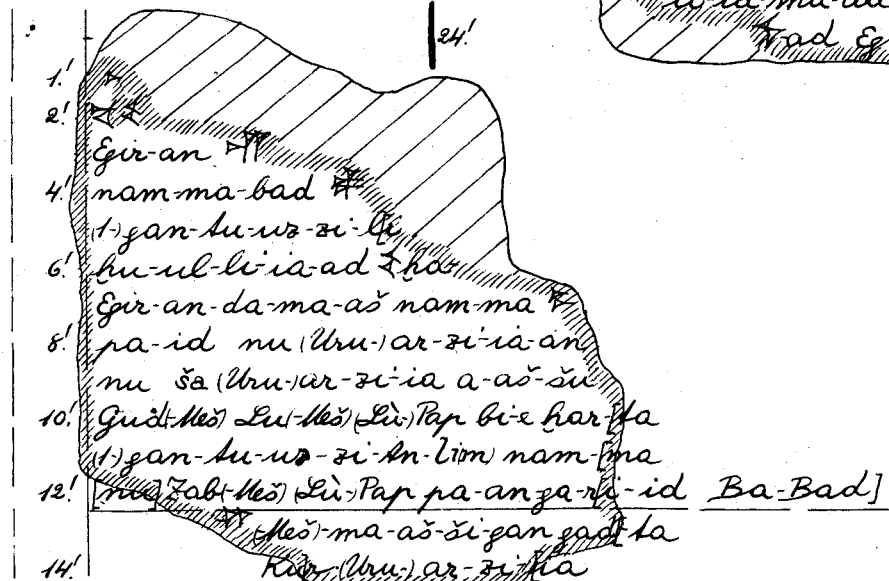 24!
ad Eg
1!
2!
Egir-an
4! nam-ma-bad
(1-)gan-tu-uz-zi-li
6! ḫu-ul-li-ia-ad ḫa
Egir-an-da-ma-aš nam-ma
8! pa-id nu (Uru-)ar-zi-ia-an
nu ša (Uru-)ar-zi-ia a-aš-šu
10! Gud(-Meš) Lu(-Meš) (Lù-)Pap bi-e ḫar-[ta
(1-)gan-tu-uz-zi-An-lim) nam-[ma
12! [nu] Zab(-Meš) (Lù-)Pap pa-an-ga-ri-id Ba-Bad]
(Meš)-ma-aš-ši-gan gad-ta
14! Kur-(Uru-)ar-zi-ia